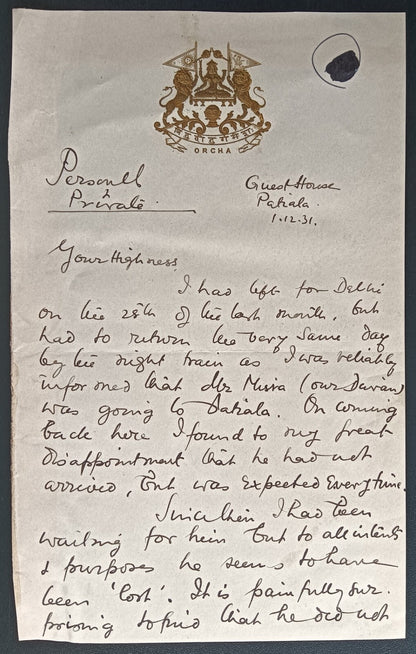 ORCHA
Personal
& Private
Guest House
Patiala.
1.12.31.
Your Highness,
I had left for Delhi
on the 28th of the last month, but
had to return the very same day
by the night train as I was reliably
informed that Mr Misra (our Dewan)
was going to Patiala. On coming
back here I found to my great
disappointment that he had not
arrived, but was expected everytime.
Since then I had been
waiting for him but to all intents
& purposes he seems to have
been 'lost'. It is painfully sur-
prising to find that he did not